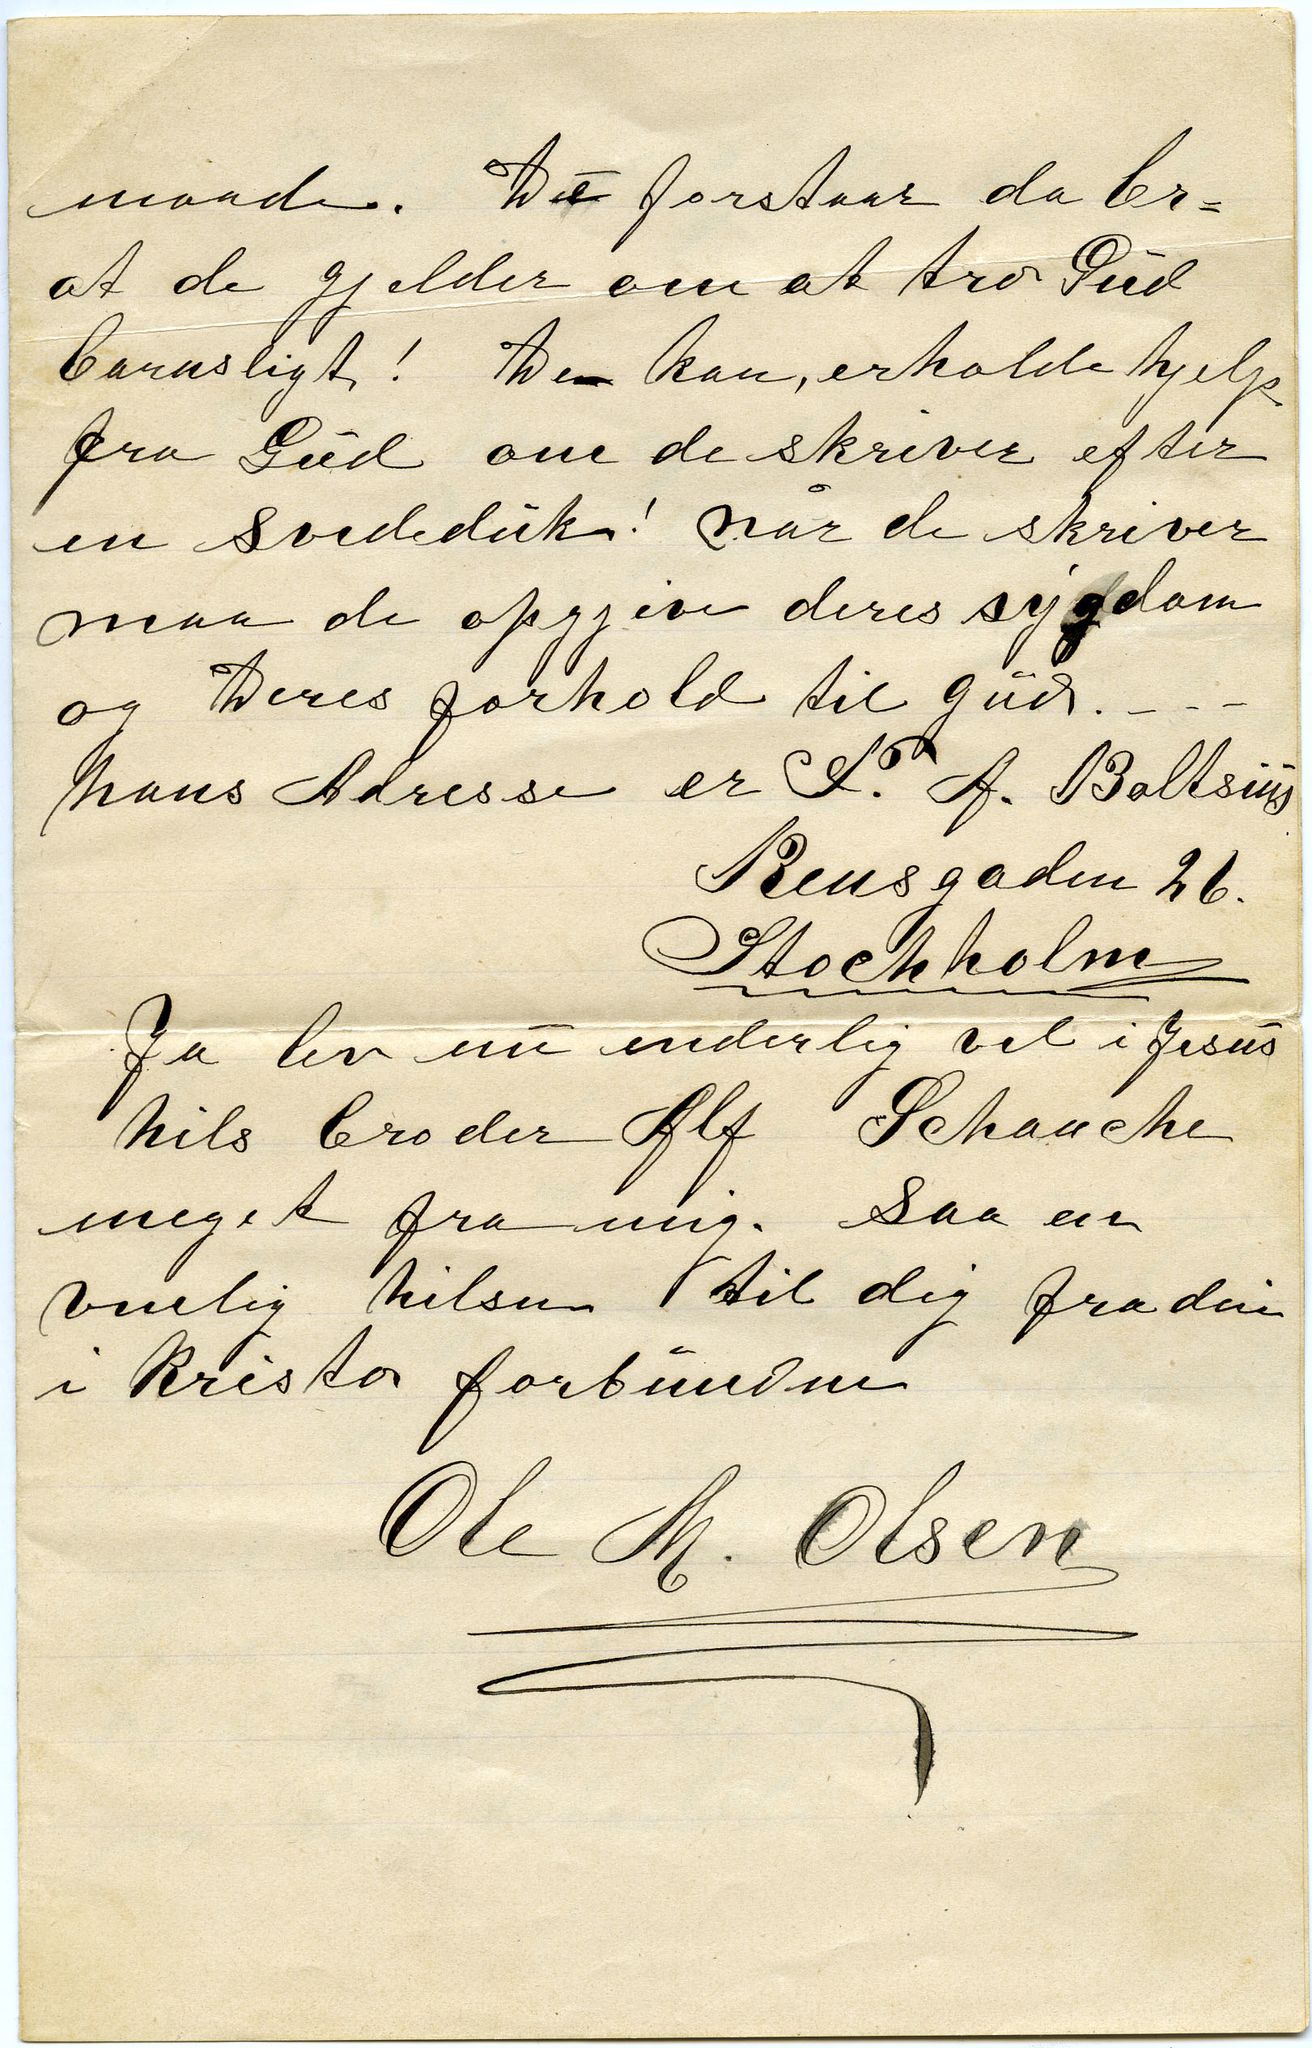 maade. De forstaar da Br=
at de gjelder om at tro Gud
barnsligt! De kan, erholde hjelp
fra Gud om de skriver efter
en Svededuk! når de skriver
maa de opgive deres sygdom
og Deres forhold til Gud. - - -
hans Adresse er F. A. Boltsius
Rensgaden 26.
Stockholm
Ja lev nu enderlig vel i Jesus
hils broder Alf Schanche
meget fra mig. Saa en
venlig hilsen til dig fra din
i Kristo forbundne
Ole M. Olsen